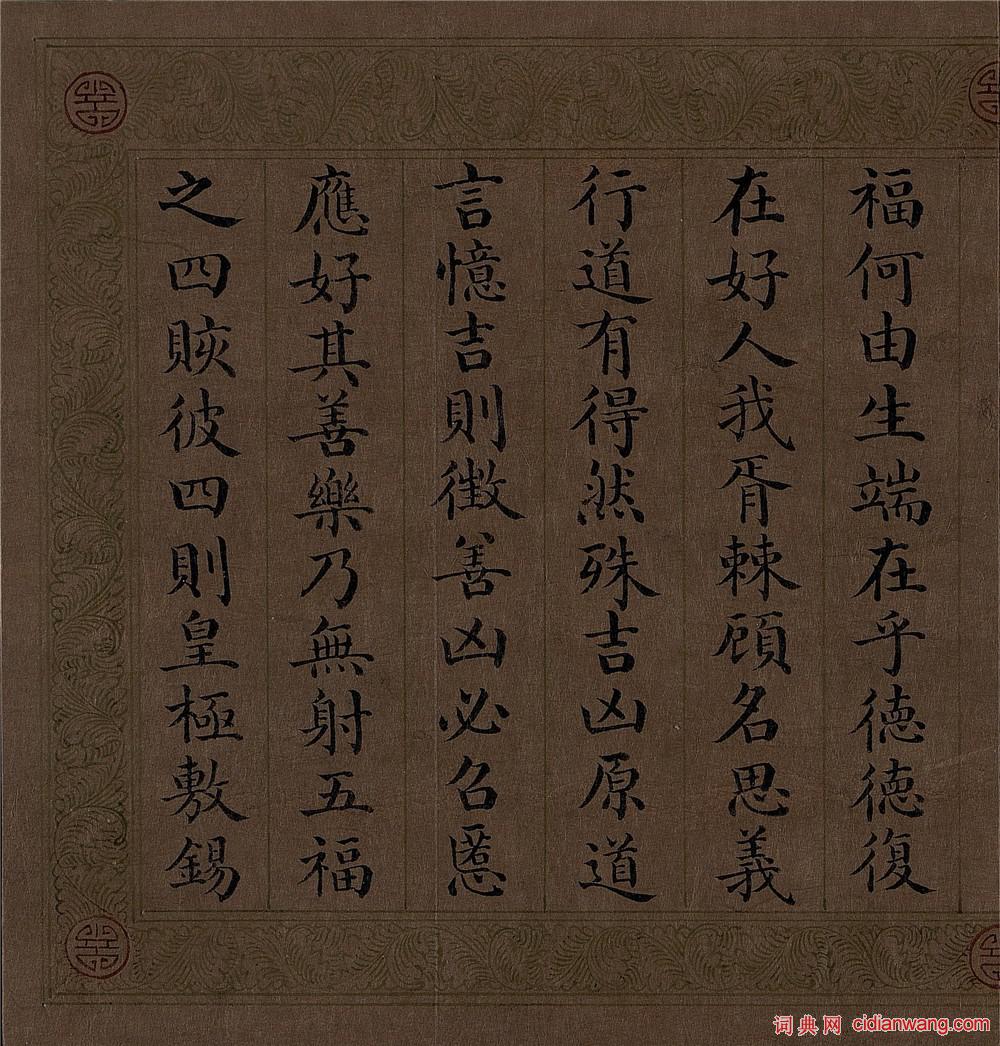 福何由生端在乎德德復
在好人我胥棘顧名思義
行道有得然殊吉凶原道
言憶吉則徵善凶必名慝
應好其善樂乃無射五福
之四賅彼四則皇極敷錫
词典网 cidianwang.com